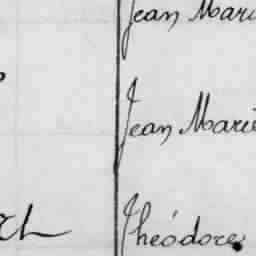 Jean Marie
Jean Marie
Théodore